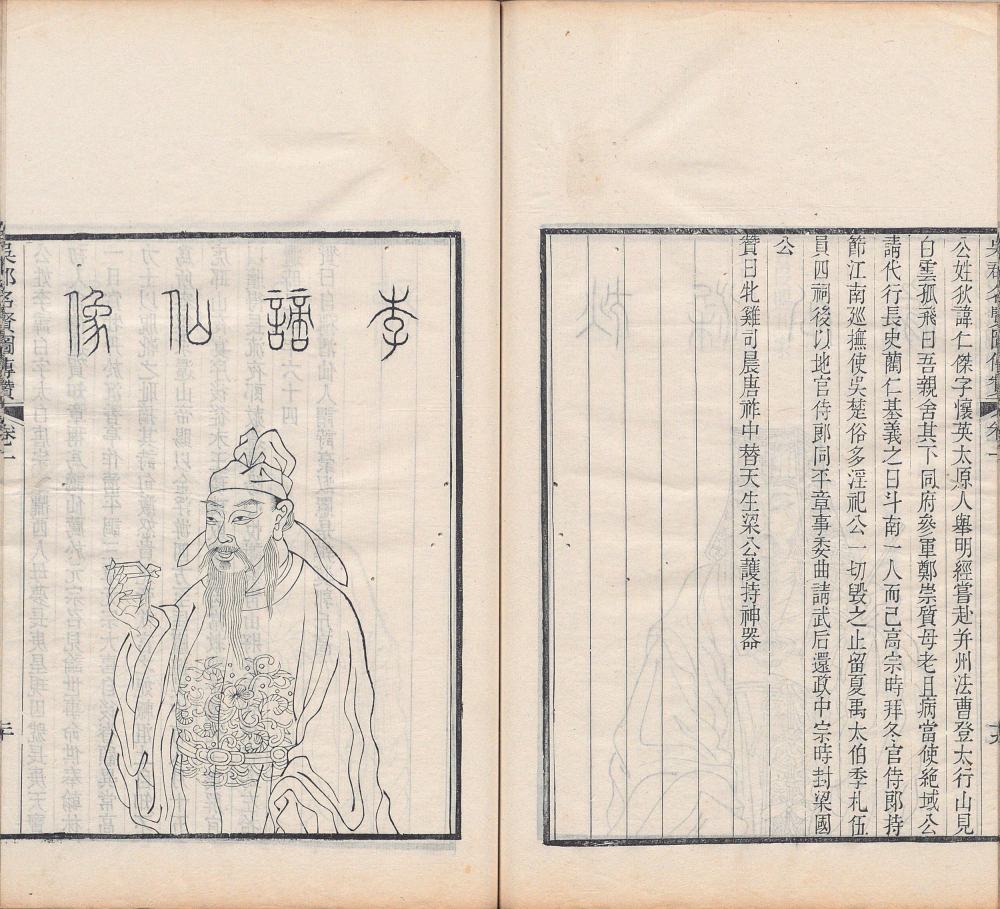 公姓狄諱仁傑字懷英太原人舉明經嘗赴并州法曹登太行山見
白雲孤飛曰吾親舍其下同府參軍鄭崇質母老且病當使絶域公
請代行長史藺仁基義之曰斗南一人而已高宗時拜冬官侍郎持
節江南廵撫使吳楚俗多淫祀公一切毁之止留夏禹太伯季札伍
員四祠後以地官侍郎同平章事委曲請武后還政中宗時封梁國
公
贊曰牝雞司晨唐祚中替天生梁公䕶持神器
李謫仙像
吳郡名賢圖傳贊 卷一